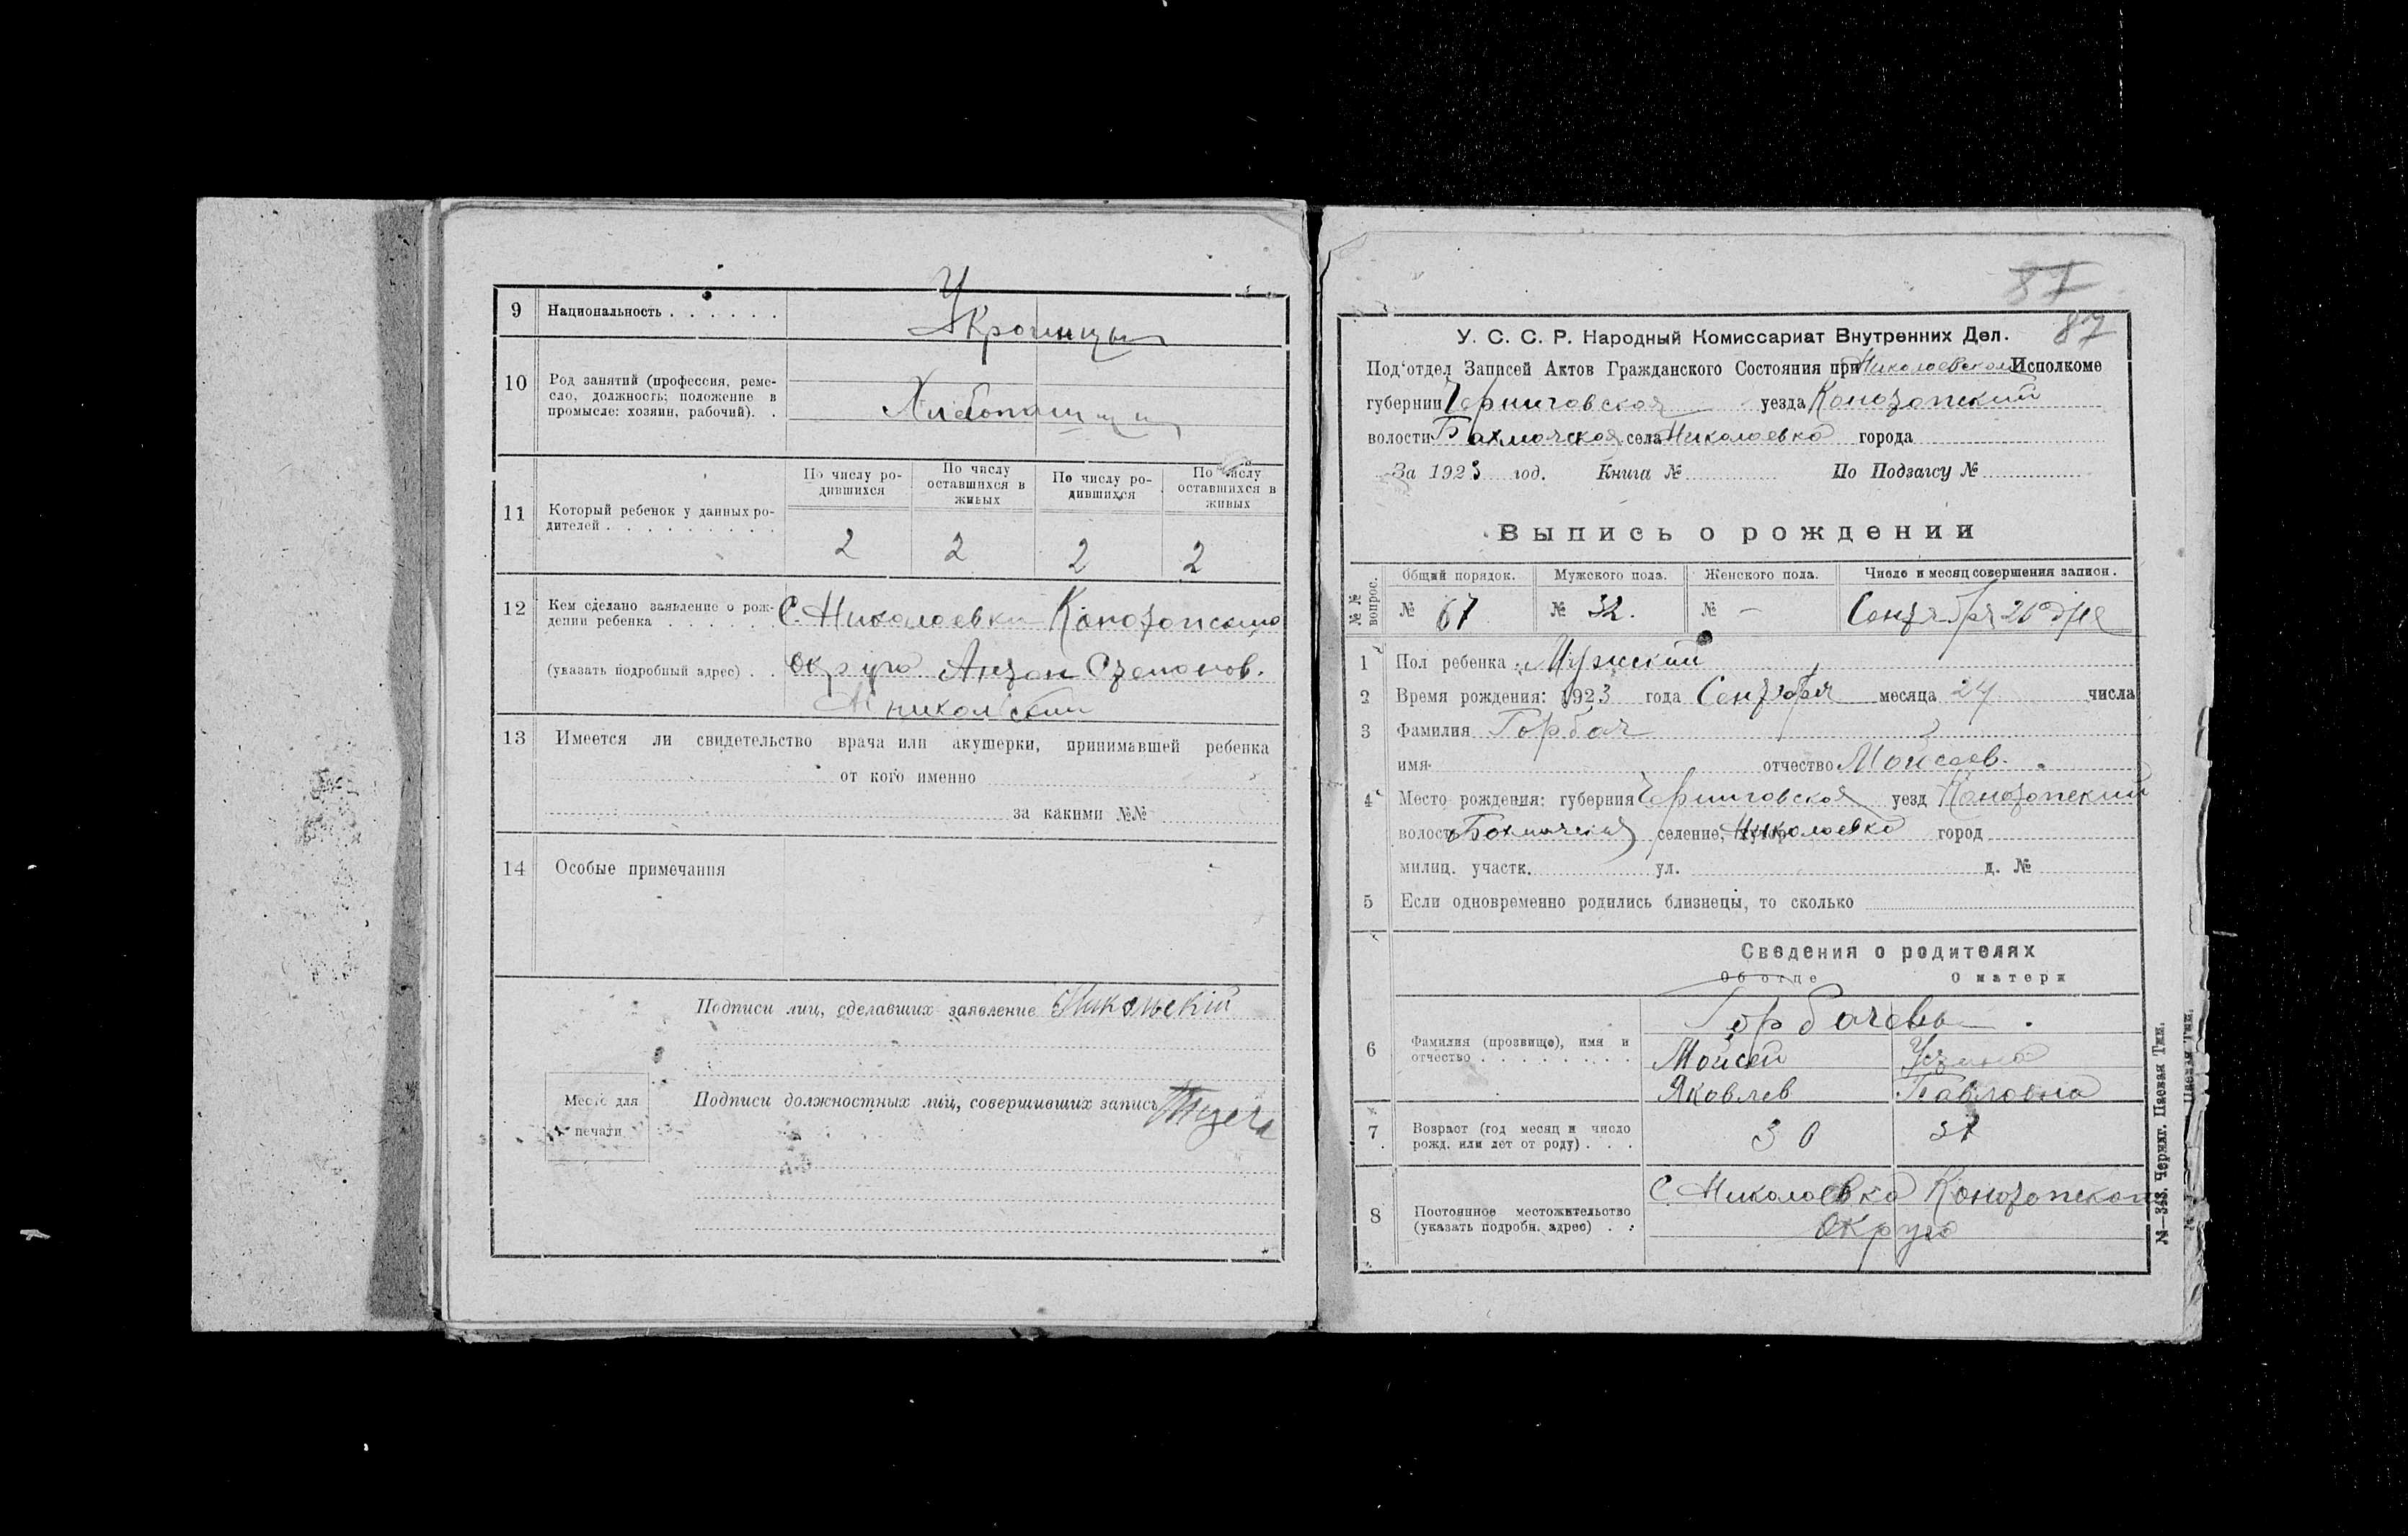 9 Национальность . . . . . .
Украинцы
10 Род занятий (профессия, реме-
сло, должность; положение в
промысле: хозяин, рабочий). .
Хлебопашцы
11 Который ребенок у данных ро-
дителей . . . . . . . . . .
По числу ро-
дившихся
По числу
оставшихся в
живых
По числу ро-
дившихся
По числу
оставшихся в
живых
2 2 2 2
12 Кем сделано заявление о рож-
дении ребенка . . . . . .
(указать подробный адрес) . .
С. Николаевки Конотопского
Округа Антон Степанов.
Никольский
13 Имеется ли свидетельство врача или акушерки, принимавшей ребенка
от кого именно
за какими №№
14 Особые примечания
Подписи лиц, сделавших заявление Никольскій
Место для
печати
Подписи должностных лиц, совершивших запись
87
87
У. С. С. Р. Народный Комиссариат Внутренних Дел.
Под‘отдел Записей Актов Гражданского Состояния при Николаевском Исполкоме
губернии Черниговская уезда Конотопский
волости Бахмачская села Николаевка города
За 1923 год. Книга № По Подзагсу №
Выпись о рождении
№ №
вопрос.
Общий порядок. Мужского пола. Женского пола. Число и месяц совершения записи.
№ 67 № 32. № — Сентября 26 дня
1 Пол ребенка Мужский
2 Время рождения: 1923 года Сентября месяца 24 числа
3 Фамилия Горбач
имя отчество Мойсеев.
4 Место рождения: губерния Черниговская уезд Конотопский
волость Бахмачская селение, хутор Николаевка город
милиц. участк. ул. д. №
5 Если одновременно родились близнецы, то сколько
Сведения о родителях
Об отце О матери
6 Фамилия (прозвище), имя и
отчество . . . . . . . . .
Горбачевы
Мойсей Устина
Яковлев Павловна
7 Возраст (год месяц и число
рожд. или лет от роду) . . .
30
8 Постоянное местожительство
(указать подробн. адрес) . .
С. Николаевка Конотопского
Округа
№—348. Черниг. Паевая Тип.